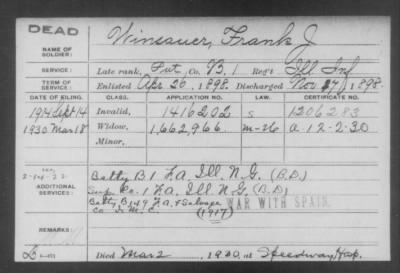 DEAD
NAME OF SOLDIER: Winsauer, Frank J
SERVICE: Late rank, Pvt, Co. B, 1 Reg't Ill Inf
TERM OF SERVICE: Enlisted Apr. 26, 1898. Discharged Nov 17, 1898.
DATE OF FILING. CLASS. APPLICATION NO. LAW. CERTIFICATE NO.
1914 Sept 14 Invalid, 1416202 S 1206283
1930 Mar 18 Widow, 1,662,966. m-26 a-12-2-30
Minor,
ADDITIONAL SERVICES: Batty B 1 F.A. Ill. N.G. (B.D.)
Sup Co. 1 F.A. Ill. N.G. (B.D.)
Batty B 149 F.A. & Salvage
WAR WITH SPAIN.
Co Q.M.C. (1917)
REMARKS:
Died Mar 2, 1930, at Speedway Hosp.